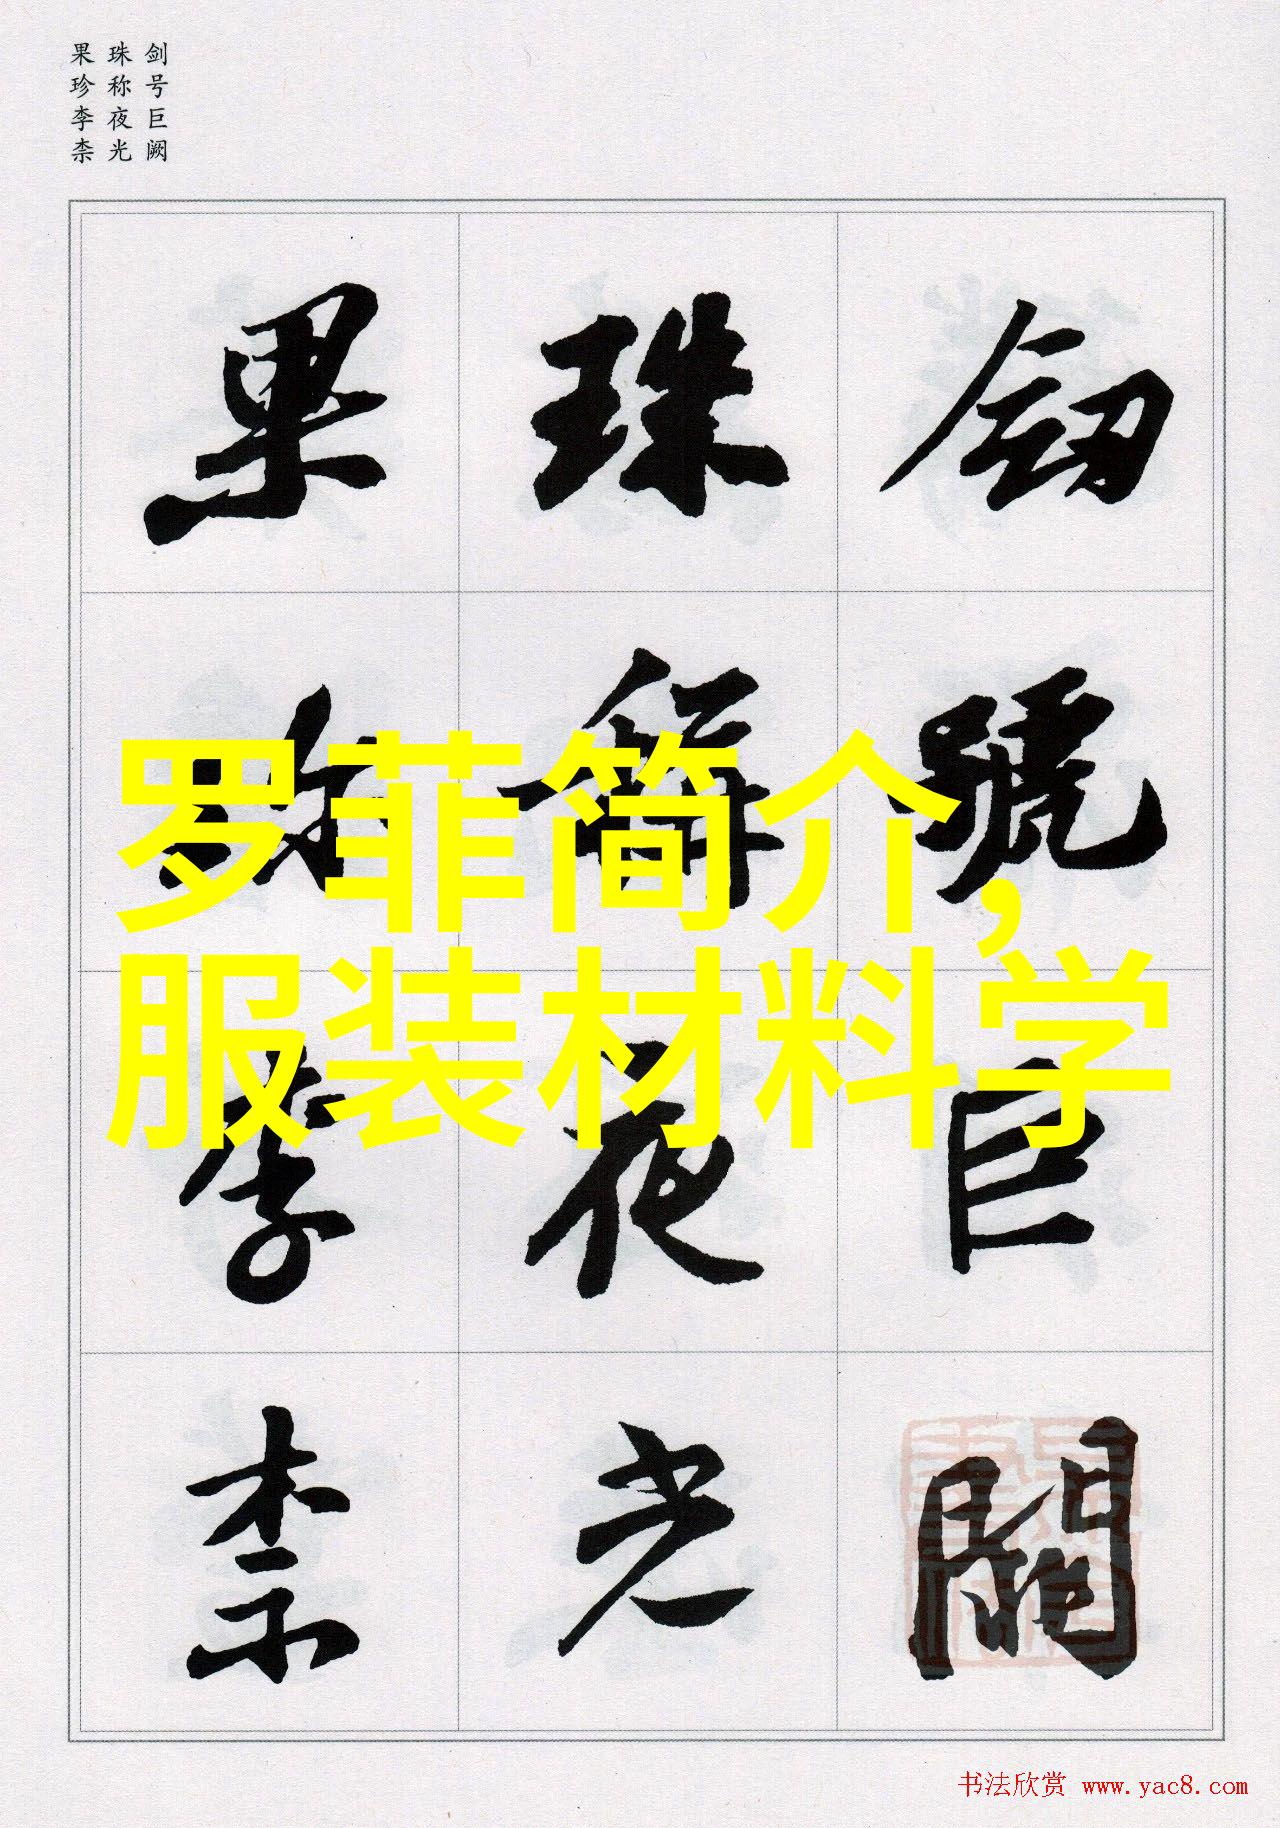 剑号巨阙
珠称夜光
果珍李柰
劒號巨闕
珠稱夜光
果珍李柰
罗菲简介,
服装材料学
书法欣赏 www.yac8.com